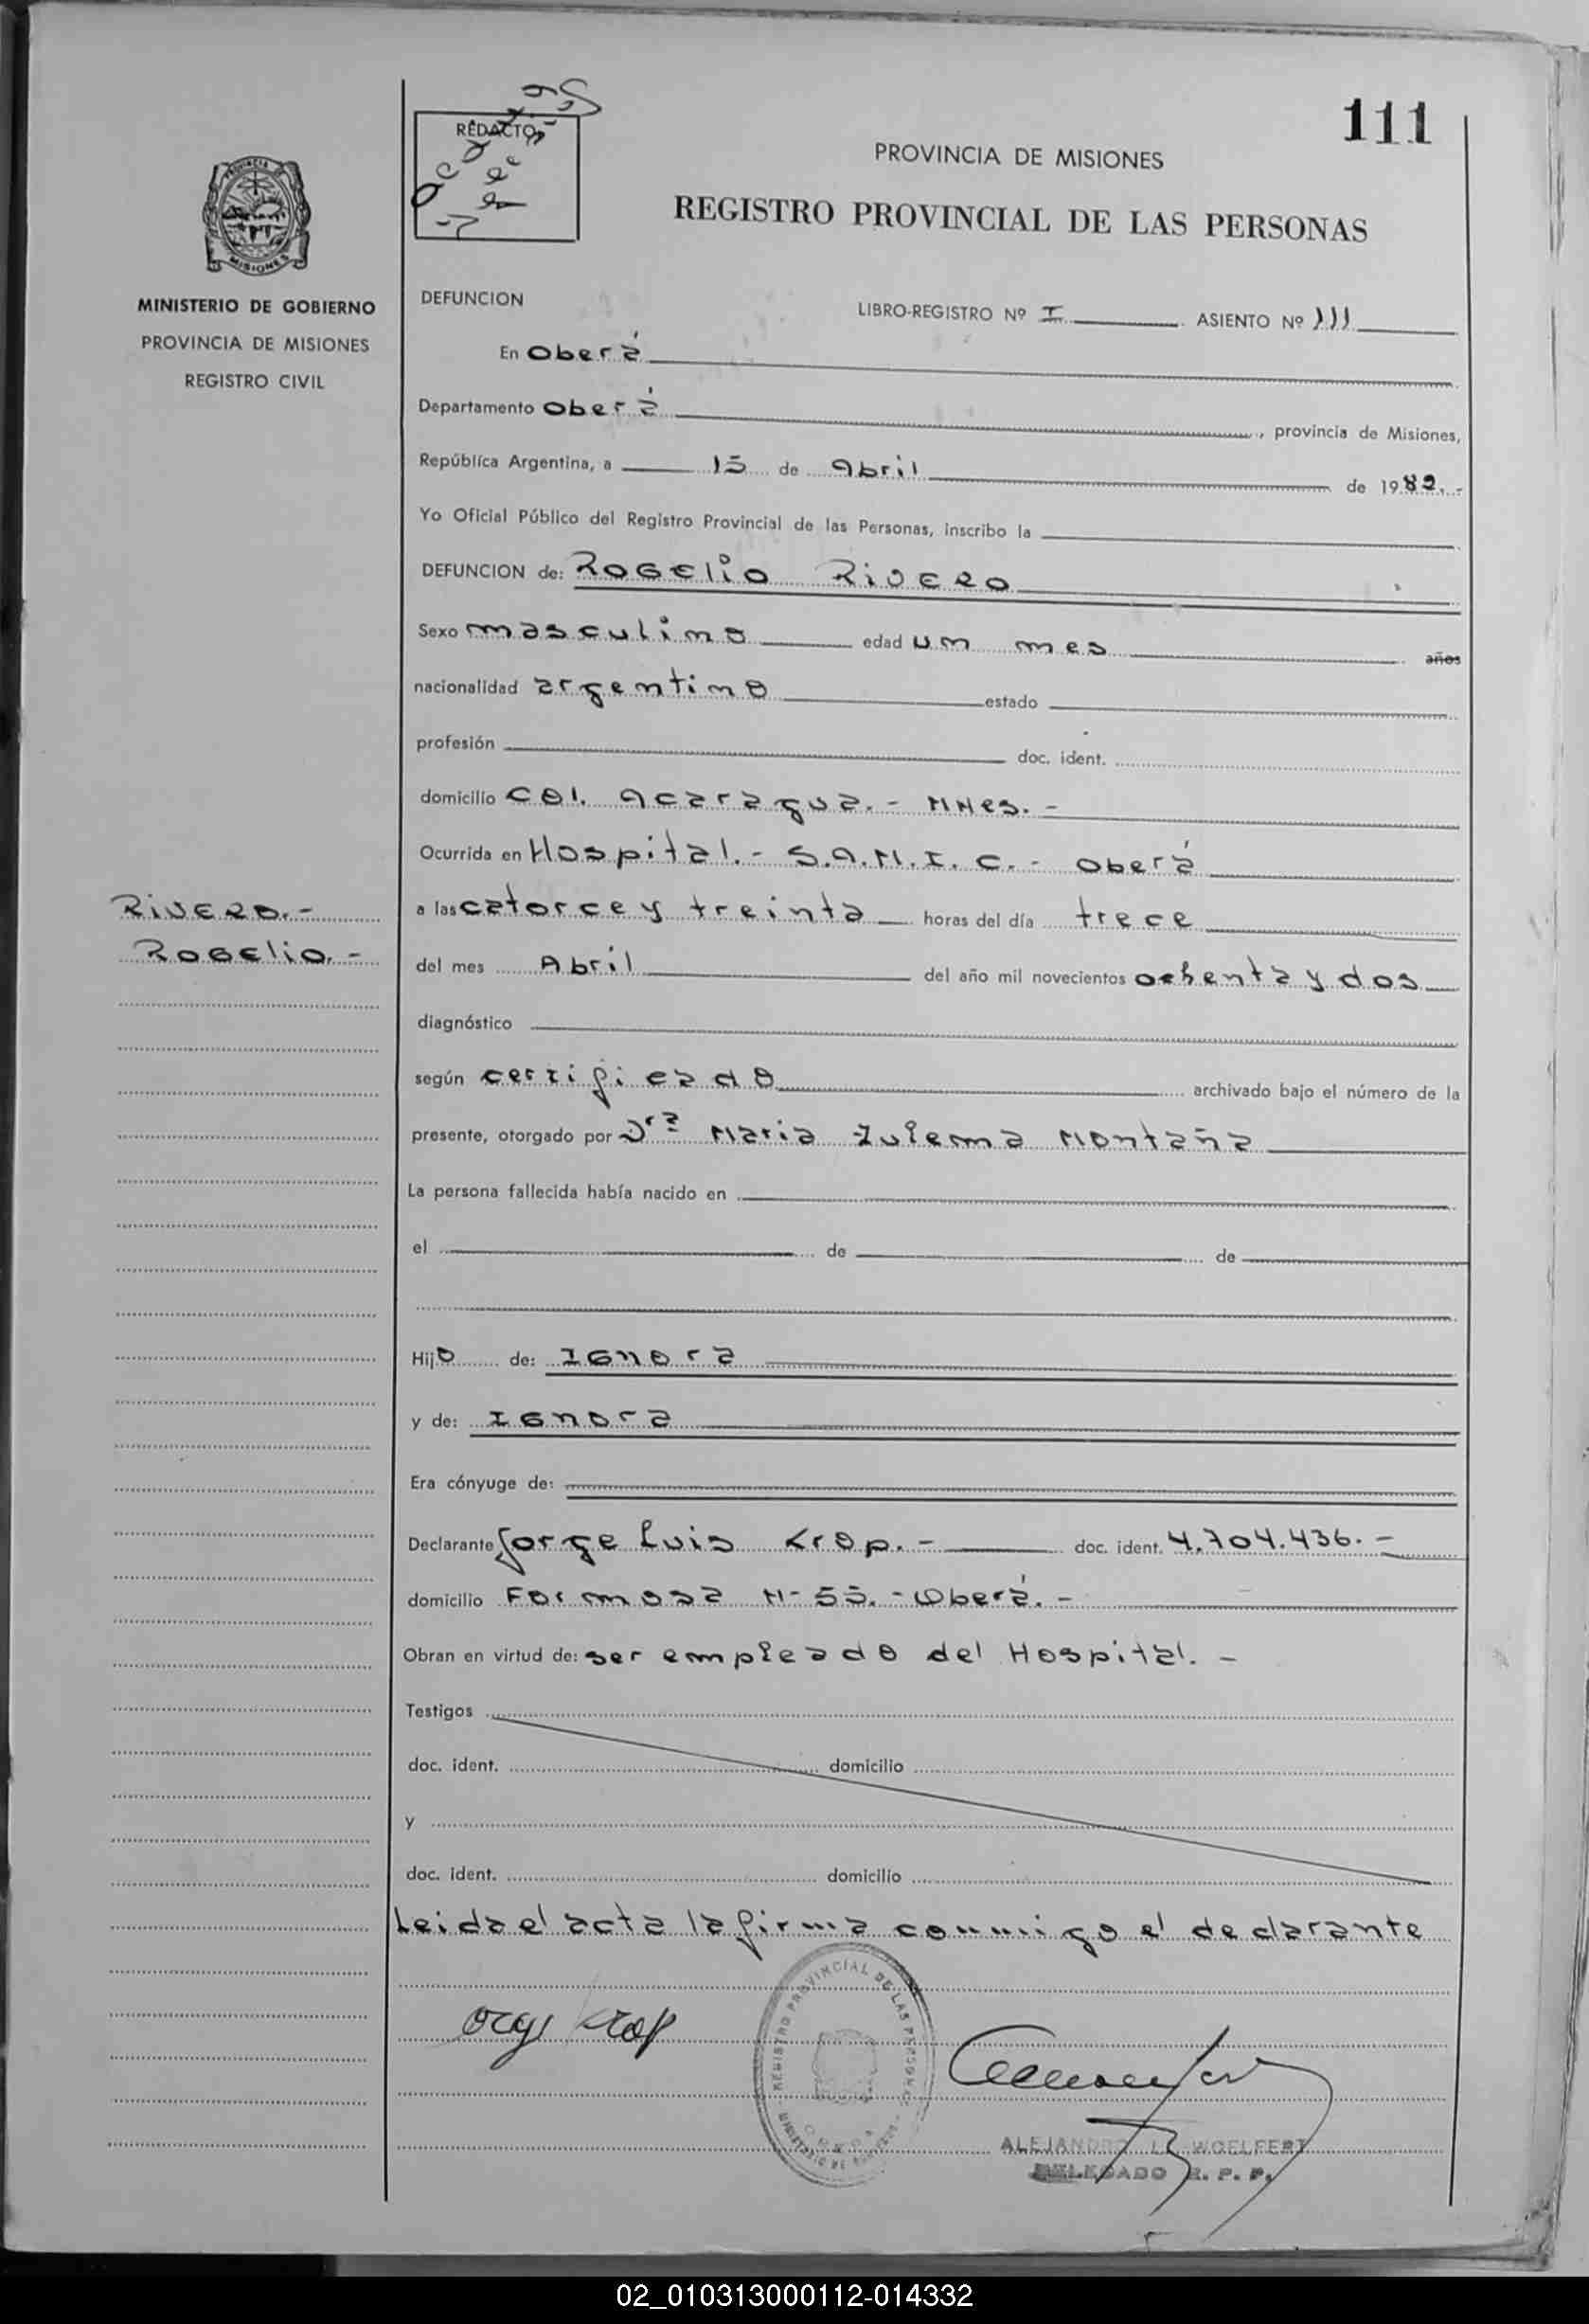 111
REDACTO
PROVINCIA DE MISIONES
REGISTRO PROVINCIAL DE LAS PERSONAS
PROVINCIA
MISIONES
MINISTERIO DE GOBIERNO
PROVINCIA DE MISIONES
REGISTRO CIVIL
DEFUNCION
LIBRO-REGISTRO Nº I ASIENTO Nº 111
En Oberá
Departamento Oberá, provincia de Misiones,
República Argentina, a 15 de Abril de 1982.-
Yo Oficial Público del Registro Provincial de las Personas, inscribo la
DEFUNCION de: ROGELIO RIVERO
Sexo masculino edad un mes años
nacionalidad argentino estado
profesión doc. ident.
domicilio Col. Acaragua.- MNES.-
Ocurrida en Hospital.- S.A.M.I.C.- Oberá
RIVERO.-
ROGELIO.-
a las catorce y treinta horas del día trece
del mes Abril del año mil novecientos ochenta y dos
diagnóstico
según certificado archivado bajo el número de la
presente, otorgado por Dra Maria Zulema Montaña
La persona fallecida había nacido en
el de de
Hijo de: IGNORA
y de: IGNORA
Era cónyuge de:
Declarante Jorge Luis Krop.- doc. ident. 4.704.436.-
domicilio Formosa N- 55.- Oberá.-
Obran en virtud de: ser empleado del Hospital.-
Testigos
doc. ident. domicilio
y
doc. ident. domicilio
Leida el acta la firma conmigo el declarante
REGISTRO PROVINCIAL DE LAS PERSONAS
ALEJANDRO WOELFERT
DELEGADO R. P. P.
02_010313000112-014332